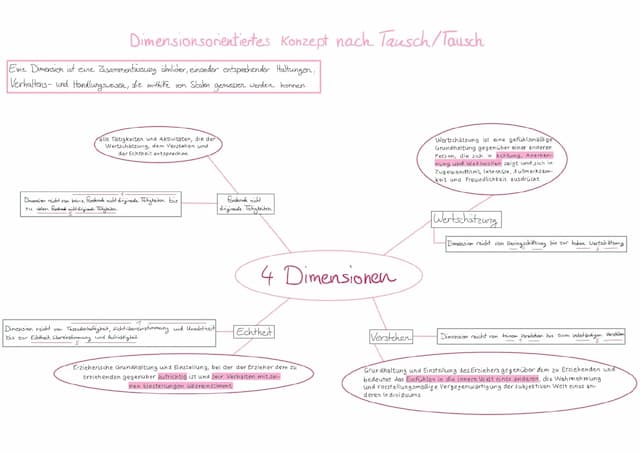 Dimensionsorientiertes Konzept nach Tausch/Tausch
Eine Dimension ist eine Zusammenfassung ähnlicher, einander entsprechender Haltungen,
Verhaltens- und Handlungsweisen, die mithilfe von Skalen gemessen werden können
alle Tätigkeiten und Aktivitäten, die der
Wertschätzung, dem Verstehen und
der Echtheit entsprechen
Wertschätzung ist eine gefühlsmäßige
Grundhaltung gegenüber einer anderen
Person, die sich in Achtung, Anerken-
nung und Wohlwollen zeigt und sich in
Zugewandtheit, Interesse, Aufmerksam-
keit und Freundlichkeit ausdrückt
Dimension reicht von keine fördernde nicht dirigierende Tätigkeiten bis
zu vielen fördernd nicht dirigierende Tätigkeiten
Fördernde nicht
dirigierende Tätigkeiten
Wertschätzung
Dimension reicht von Geringschätzung bis zur hohen Wertschätzung
4 Dimensionen
Dimension reicht von Fassadenhaftigkeit, Nichtübereinstimmung und Unechtheit
bis zur Echtheit, Übereinstimmung und Aufrichtigkeit
Echtheit
Verstehen
Dimension reicht von keinem Verstehen bis zum vollständigen Verstehen
Erzieherische Grundhaltung und Einstellung, bei der der Erzieher dem zu
Erziehenden gegenüber aufrichtig ist und sein Verhalten mit sei-
nen Einstellungen übereinstimmt
Grundhaltung und Einstellung des Erziehers gegenüber dem zu Erziehenden und
bedeutet das Einfühlen in die innere Welt eines anderen, die Wahrnehmung
und vorstellungsmäßige Vergegenwärtigung der subjektiven Welt eines an-
deren Individuums